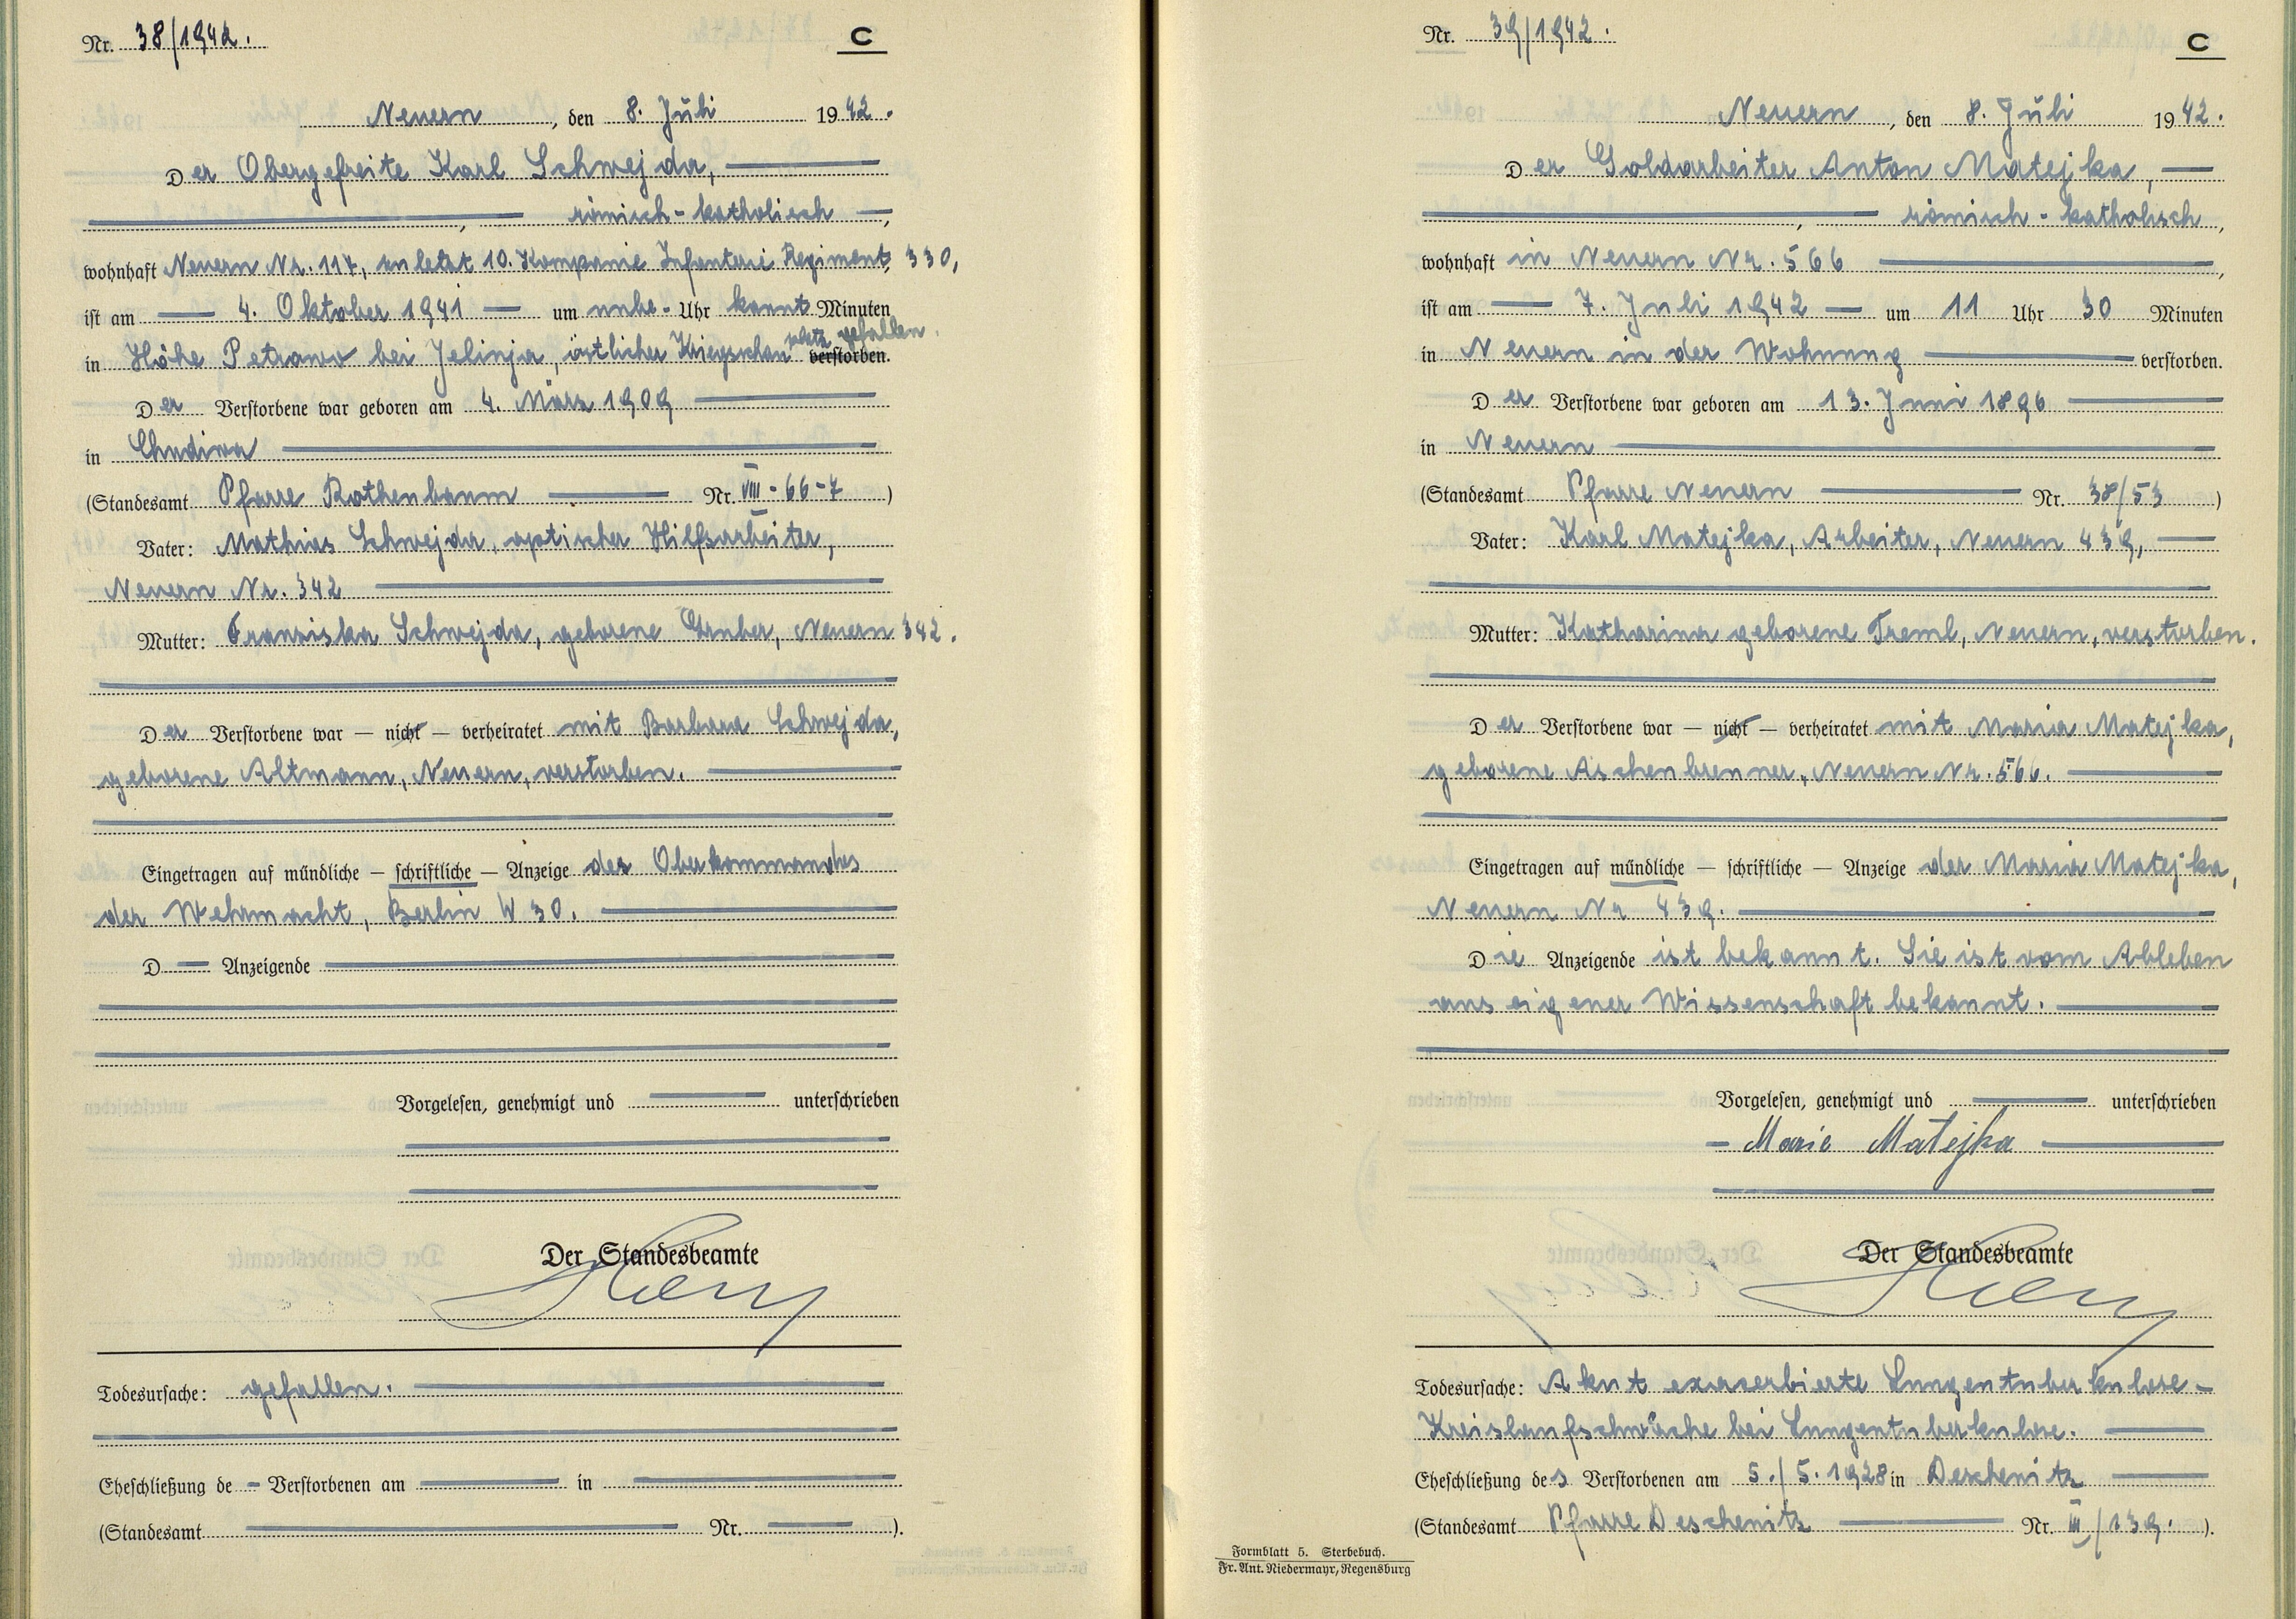 Nr. 38/1942. C
Neuern, den 8. Juli 1942.
Der Obergefreite Karl Schwejda,
römisch-katholisch,
wohnhaft Neuern Nr. 117, zuletzt 10. Kompanie Infanterie Regiment 330,
ist am 4. Oktober 1941 um unbe- Uhr kannt Minuten
in Höhe Petrowo bei Jelinja, östlicher Kriegsschauplatz gefallen. verstorben.
Der Verstorbene war geboren am 4. März 1909
in Chudiwa
(Standesamt Pfarre Rothenbaum Nr. VIII-66-7)
Vater: Mathias Schwejda, optischer Hilfsarbeiter,
Neuern Nr. 342
Mutter: Franziska Schwejda, geborene Gruber, Neuern 342.
Der Verstorbene war — nicht — verheiratet mit Barbara Schwejda,
geborene Altmann, Neuern, verstorben.
Eingetragen auf mündliche — schriftliche — Anzeige des Oberkommandos
der Wehrmacht, Berlin W 30.
D Anzeigende
Vorgelesen, genehmigt und unterschrieben
Der Standesbeamte
Todesursache: gefallen.
Eheschließung de - Verstorbenen am in
(Standesamt Nr. ).
Nr. 39/1942. C
Neuern, den 8. Juli 1942.
Der Goldarbeiter Anton Matejka,
römisch-katholisch,
wohnhaft in Neuern Nr. 566,
ist am 7. Juli 1942 um 11 Uhr 30 Minuten
in Neuern in der Wohnung verstorben.
Der Verstorbene war geboren am 13. Juni 1896
in Neuern
(Standesamt Pfarre Neuern Nr. 38/53)
Vater: Karl Matejka, Arbeiter, Neuern 439,
Mutter: Katharina geborene Treml, Neuern, verstorben.
Der Verstorbene war — nicht — verheiratet mit Maria Matejka,
geborene Aschenbrenner, Neuern Nr. 566.
Eingetragen auf mündliche — schriftliche — Anzeige der Maria Matejka,
Neuern Nr 439.
Die Anzeigende ist bekannt. Sie ist vom Ableben
aus eigener Wissenschaft bekannt.
Vorgelesen, genehmigt und unterschrieben
Marie Matejka
Der Standesbeamte
Todesursache: Akut exacerbierte Lungentuberkulose -
Kreislaufschwäche bei Lungentuberkulose.
Eheschließung des Verstorbenen am 5./5.1928 in Deschenitz
(Standesamt Pfarre Deschenitz Nr. III/139.).
Formblatt 5. Sterbebuch.
Fr. Ant. Niedermayr, Regensburg